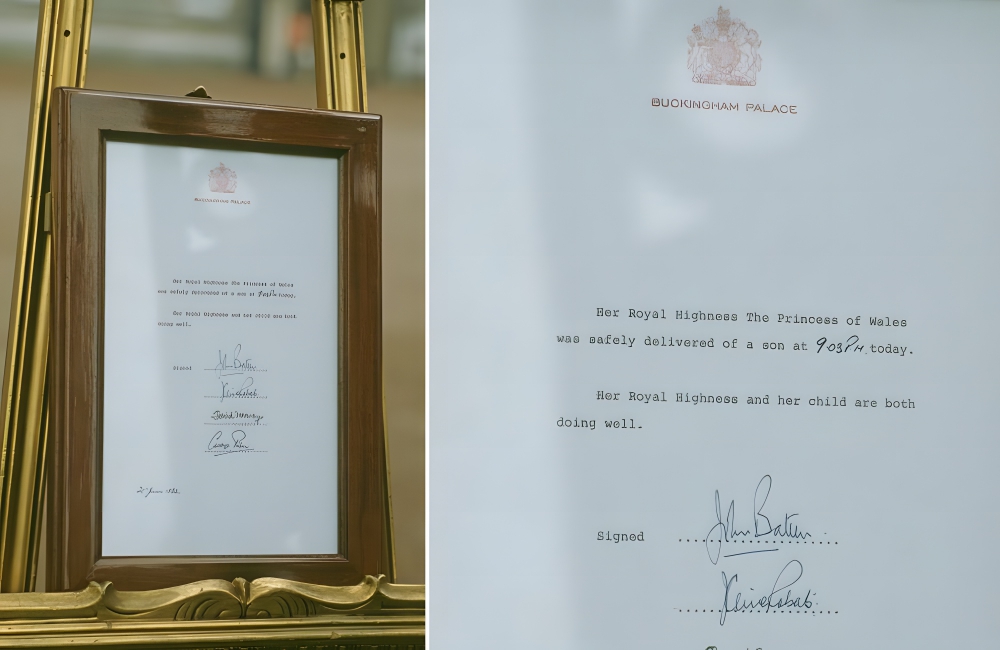 BUCKINGHAM PALACE
Her Royal Highness The Princess of Wales
was safely delivered of a son at today.
Her Royal Highness and her child are both
doing well.
Signed
John Batten
BUCKINGHAM PALACE
Her Royal Highness The Princess of Wales
was safely delivered of a son at 9.03PM today.
Her Royal Highness and her child are both
doing well.
Signed
John Batten